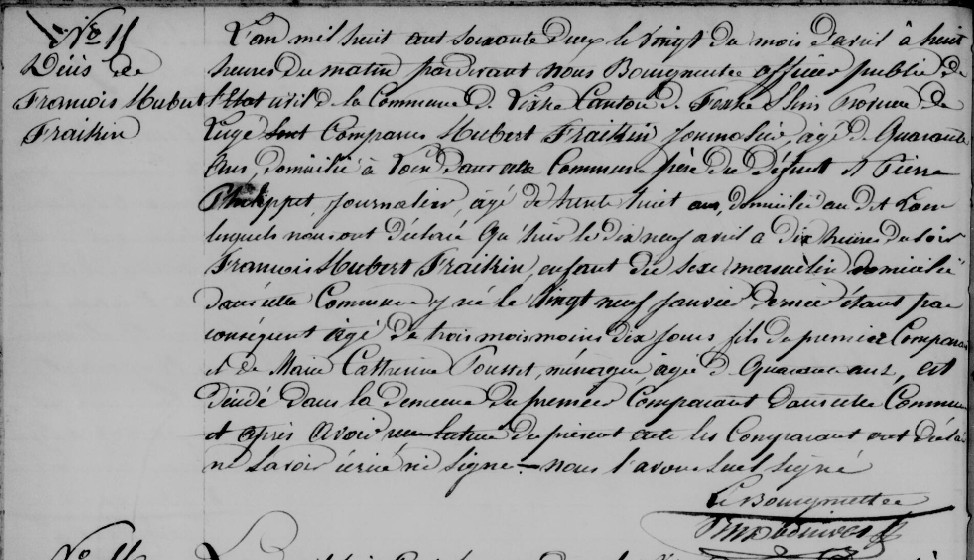 No 11
Décès de
François Hubert
Fraikin
L'an mil huit cent soixante deux le vingt du mois d'avril à huit
heures du matin pardevant nous Bourgmestre officier public de
l'Etat civil de la Commune de Canton de Province de
Liège sont Comparus Hubert Fraikin journalier, âgé de Quarante
ans, domicilié à dans cette Commune père du Défunt et Pierre
Philippet, journalier, âgé de trente huit ans, domicilié au dit
lesquels nous ont déclaré Qu'hier le dix neuf avril à dix heures du soir
François Hubert Fraikin, enfant du sexe masculin domicilié
dans cette Commune y né le vingt neuf Janvier dernier étant par
conséquent âgé de trois mois moins dix jours, fils de premier Comparant
et de Marie Catherine Pousset, ménagère âgée de Quarante ans, est
décédé dans la demeure du premier Comparant dans cette Commune
et après avoir lecture du présent acte les Comparant ont déclaré
ne savoir écrire ni signer - nous l'avons seul signé
Le Bourgmestre
No